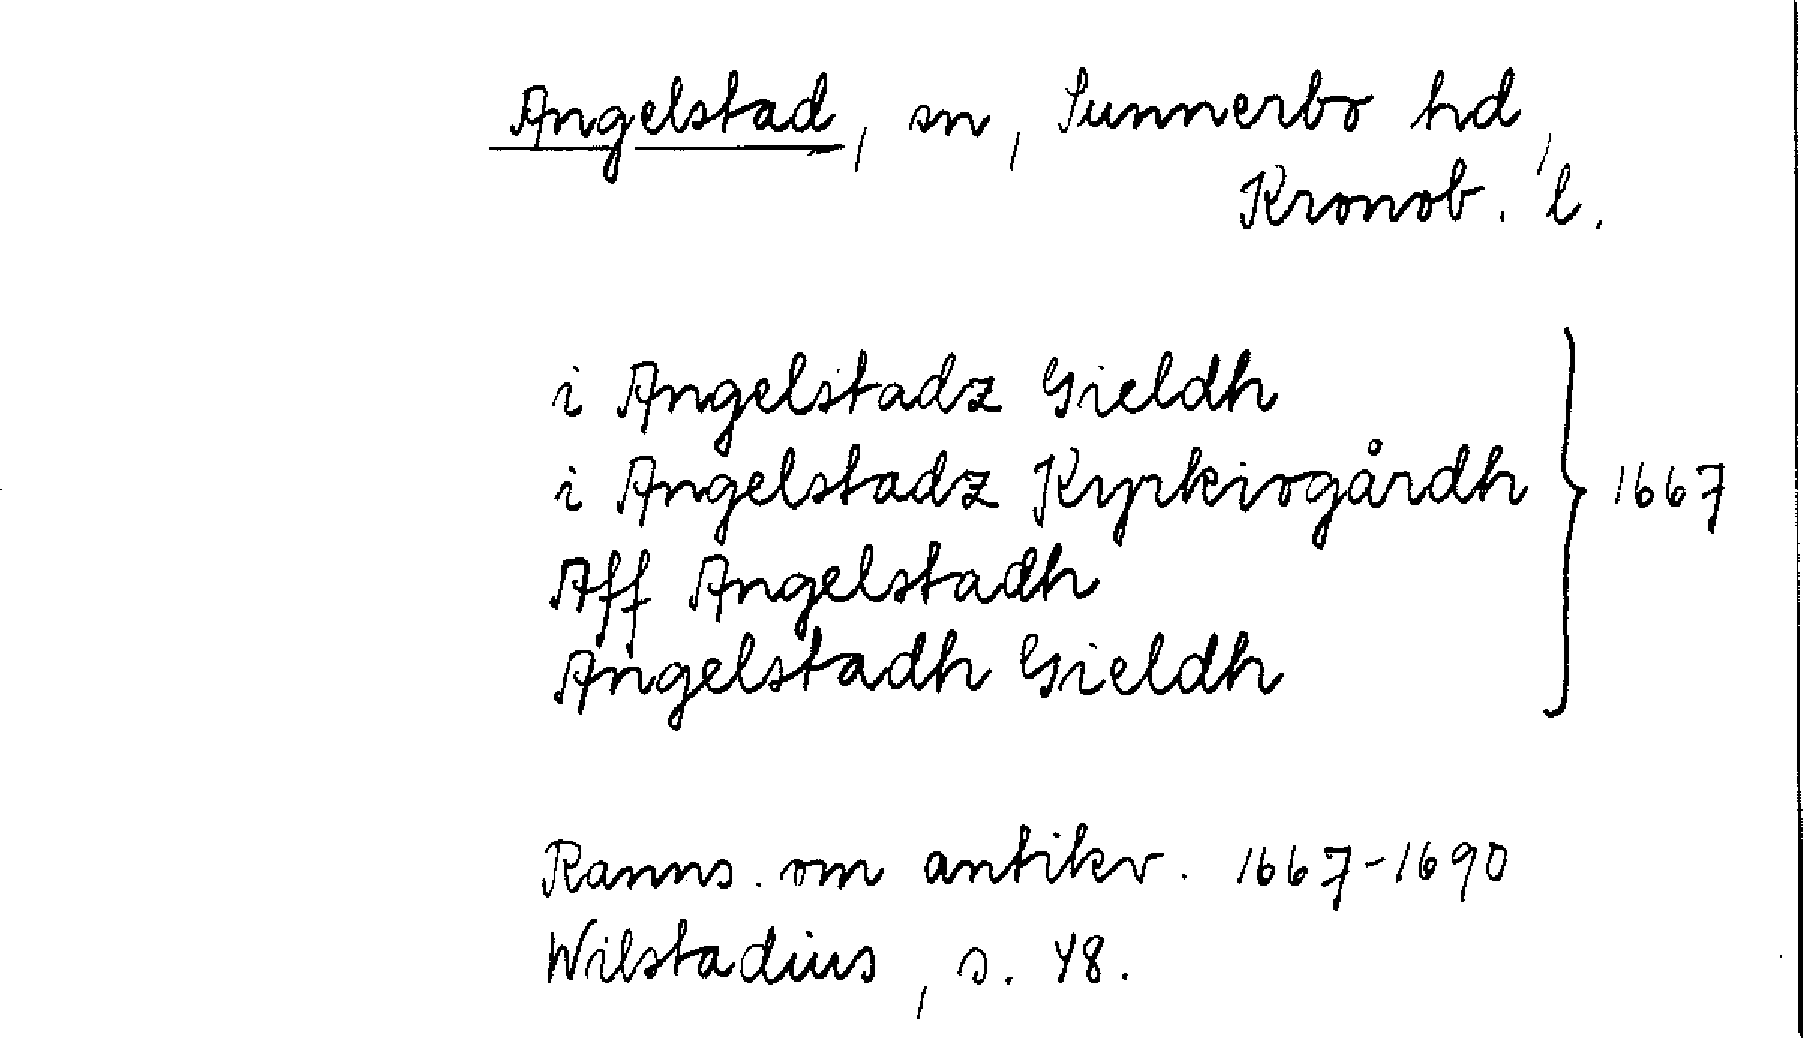 Angelstad, sn, Sunnerbo hd,
Kronob. l.
i Angelstadz Gieldh
i Angelstadz Kyrkiogårdh } 1667
Aff Angelstadh
Angelstadh Gieldh
Ranns. om antikv. 1667-1690
Wilstadius, s. 48.